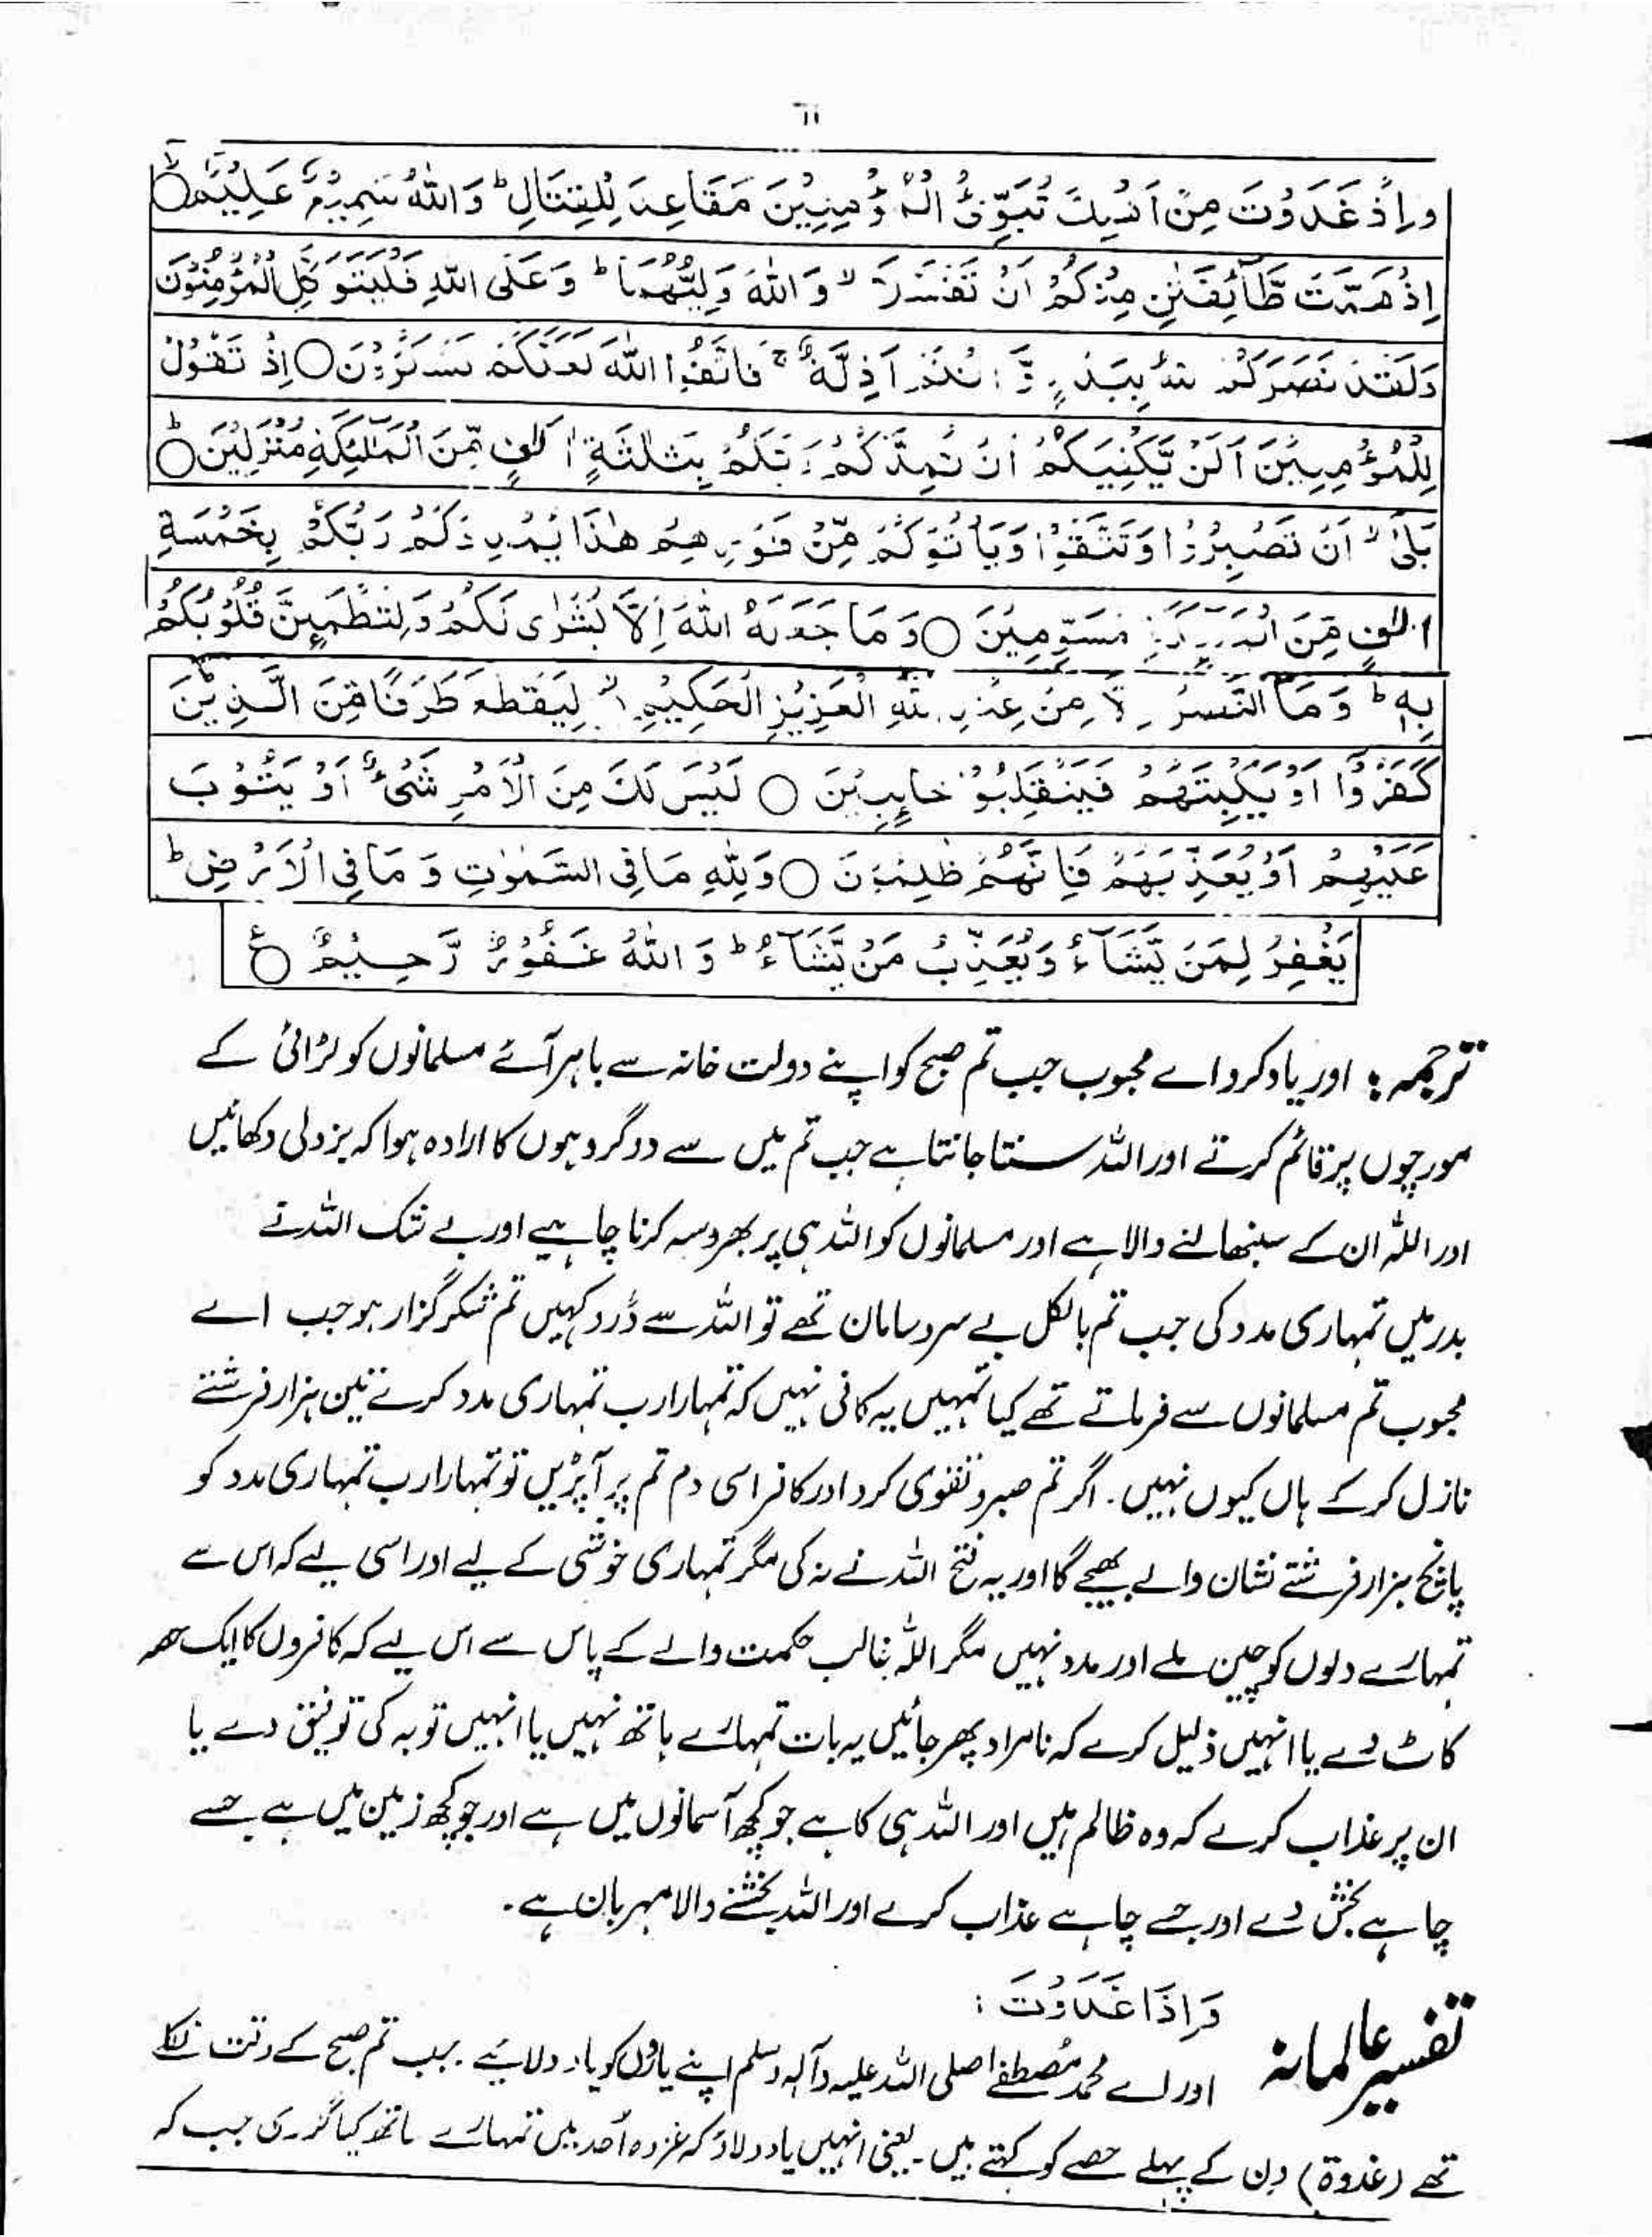 واِذْ غَدَوْتَ مِنْ اَهْلِكَ تُبَوِّئُ الْمُؤْمِنِيْنَ مَقَاعِدَ لِلْقِتَالِ ؕ وَاللّٰهُ سَمِيْعٌ عَلِيْمٌ ○
اِذْ هَمَّتْ طَّآئِفَتٰنِ مِنْكُمْ اَنْ تَفْشَلَا ۙ وَاللّٰهُ وَلِيُّهُمَا ؕ وَعَلَى اللّٰهِ فَلْيَتَوَكَّلِ الْمُؤْمِنُوْنَ
وَلَقَدْ نَصَرَكُمُ اللّٰهُ بِبَدْرٍ وَّاَنْتُمْ اَذِلَّةٌ ۚ فَاتَّقُوا اللّٰهَ لَعَلَّكُمْ تَشْكُرُوْنَ ○ اِذْ تَقُوْلُ
لِلْمُؤْمِنِيْنَ اَلَنْ يَّكْفِيَكُمْ اَنْ يُّمِدَّكُمْ رَبُّكُمْ بِثَلٰثَةِ اٰلٰفٍ مِّنَ الْمَلٰٓئِكَةِ مُنْزَلِيْنَ ○ؕ
بَلٰٓى ۙ اِنْ تَصْبِرُوْا وَتَتَّقُوْا وَيَاْتُوْكُمْ مِّنْ فَوْرِهِمْ هٰذَا يُمْدِدْكُمْ رَبُّكُمْ بِخَمْسَةِ
اٰلٰفٍ مِّنَ الْمَلٰٓئِكَةِ مُسَوِّمِيْنَ ○ وَمَا جَعَلَهُ اللّٰهُ اِلَّا بُشْرٰى لَكُمْ وَلِتَطْمَئِنَّ قُلُوْبُكُمْ
بِهٖ ؕ وَمَا النَّصْرُ اِلَّا مِنْ عِنْدِ اللّٰهِ الْعَزِيْزِ الْحَكِيْمِ ۙ لِيَقْطَعَ طَرَفًا مِّنَ الَّذِيْنَ
كَفَرُوْٓا اَوْ يَكْبِتَهُمْ فَيَنْقَلِبُوْا خَآئِبِيْنَ ○ لَيْسَ لَكَ مِنَ الْاَمْرِ شَیْءٌ اَوْ يَتُوْبَ
عَلَيْهِمْ اَوْ يُعَذِّبَهُمْ فَاِنَّهُمْ ظٰلِمُوْنَ ○ وَلِلّٰهِ مَا فِى السَّمٰوٰتِ وَمَا فِى الْاَرْضِ ؕ
يَغْفِرُ لِمَنْ يَّشَآءُ وَيُعَذِّبُ مَنْ يَّشَآءُ ؕ وَاللّٰهُ غَفُوْرٌ رَّحِيْمٌ ○ ع
ترجمہ: اور یاد کرو اے محبوب جب تم صبح کو اپنے دولت خانہ سے باہر آئے مسلمانوں کو لڑائی کے
مورچوں پر قائم کرتے اور اللہ سنتا جانتا ہے جب تم میں سے دو گروہوں کا ارادہ ہوا کہ بزدلی دکھائیں
اور اللہ ان کے سنبھالنے والا ہے اور مسلمانوں کو اللہ ہی پر بھروسہ کرنا چاہیے اور بے شک اللہ نے
بدر میں تمہاری مدد کی جب تم بالکل بے سروسامان تھے تو اللہ سے ڈرو کہیں تم شکر گزار ہو جب اے
محبوب تم مسلمانوں سے فرماتے تھے کیا تمہیں یہ کافی نہیں کہ تمہارا رب تمہاری مدد کرے تین ہزار فرشتے
نازل کر کے ہاں کیوں نہیں۔ اگر تم صبر و تقوی کرو اور کافر اسی دم تم پر آپڑیں تو تمہارا رب تمہاری مدد کو
پانچ ہزار فرشتے نشان والے بھیجے گا اور یہ فتح اللہ نے نہ کی مگر تمہاری خوشی کے لیے اور اسی لیے کہ اس سے
تمہارے دلوں کو چین ملے اور مدد نہیں مگر اللہ غالب حکمت والے کے پاس سے اس لیے کہ کافروں کا ایک حصہ
کاٹ دے یا انہیں ذلیل کرے کہ نامراد پھر جائیں یہ بات تمہارے ہاتھ نہیں یا انہیں توبہ کی توفیق دے یا
ان پر عذاب کرے کہ وہ ظالم ہیں اور اللہ ہی کا ہے جو کچھ آسمانوں میں ہے اور جو کچھ زمین میں ہے جسے
چاہے بخش دے اور جسے چاہے عذاب کرے اور اللہ بخشنے والا مہربان ہے۔
تفسیر عالمانہ وَاِذَا غَدَوْتَ :
اور اے محمد مُصطفےٰ صلی اللہ علیہ وآلہ وسلم اپنے یاروں کو یاد دلائیے۔ جب تم صبح کے وقت نکلے
تھے (غدوۃ) دن کے پہلے حصے کو کہتے ہیں۔ یعنی انہیں یاد دلاؤ کہ غزوہ اُحد میں تمہارے ساتھ کیا گزری جب کہ